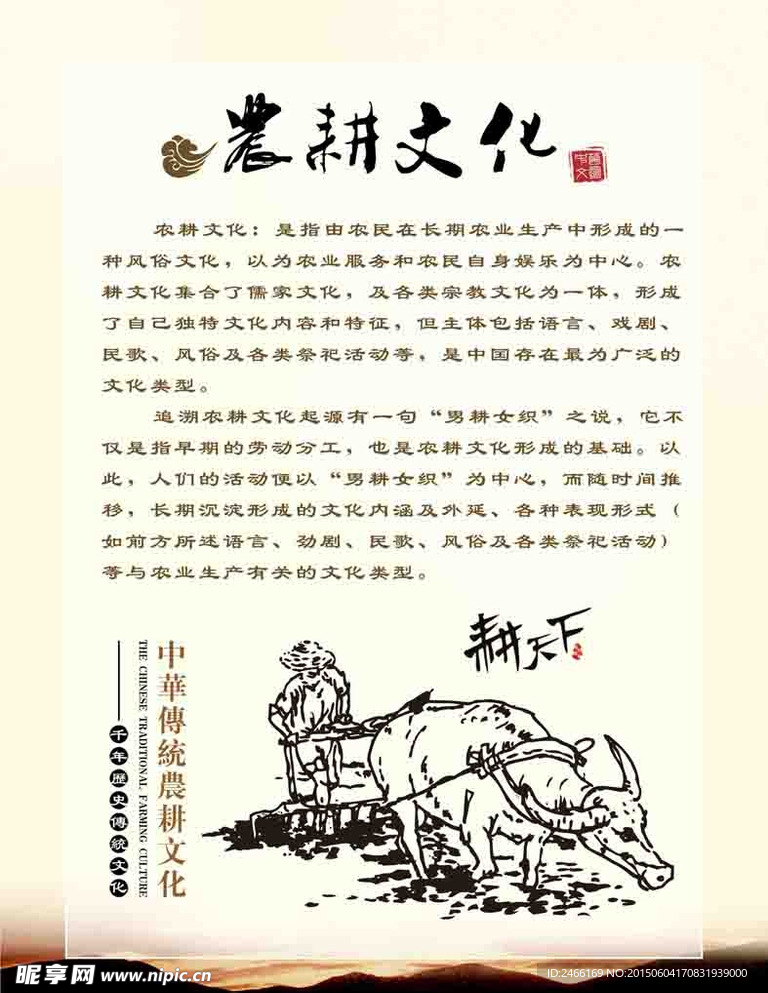 農耕文化
农耕文化：是指由农民在长期农业生产中形成的一
种风俗文化，以为农业服务和农民自身娱乐为中心。农
耕文化集合了儒家文化，及各类宗教文化为一体，形成
了自己独特文化内容和特征，但主体包括语言、戏剧、
民歌、风俗及各类祭祀活动等，是中国存在最为广泛的
文化类型。
追溯农耕文化起源有一句“男耕女织”之说，它不
仅是指早期的劳动分工，也是农耕文化形成的基础。以
此，人们的活动便以“男耕女织”为中心，而随时间推
移，长期沉淀形成的文化内涵及外延、各种表现形式（
如前方所述语言、劲剧、民歌、风俗及各类祭祀活动）
等与农业生产有关的文化类型。
耕天下
中華傳統農耕文化
THE CHINESE TRADITIONAL FARMING CULTURE
千年歷史傳統文化
昵享网 www.nipic.cn
ID:2466169 NO:20150604170831939000